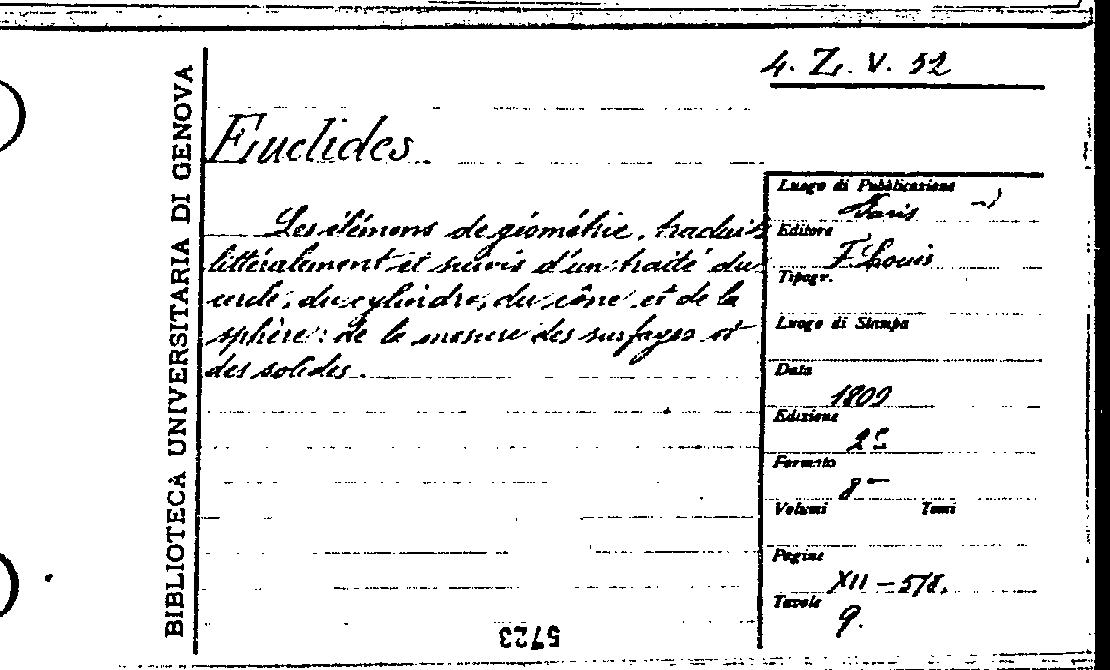 4. Z. V. 52
BIBLIOTECA UNIVERSITARIA DI GENOVA
Euclides.
Les élémens de géométrie, traduits
littéralement et suivis d'un traité du
cercle, du cylindre, du cône et de la
sphère: de la mesure des surfaces et
des solides.
Luogo di Pubblicazione
Paris
Editore
F. Louis
Tipogr.
Luogo di Stampa
Data
1809
Edizione
2e
Formato
8°
Volumi Tomi
Pagine
XII-578.
Tavole
9.
5723